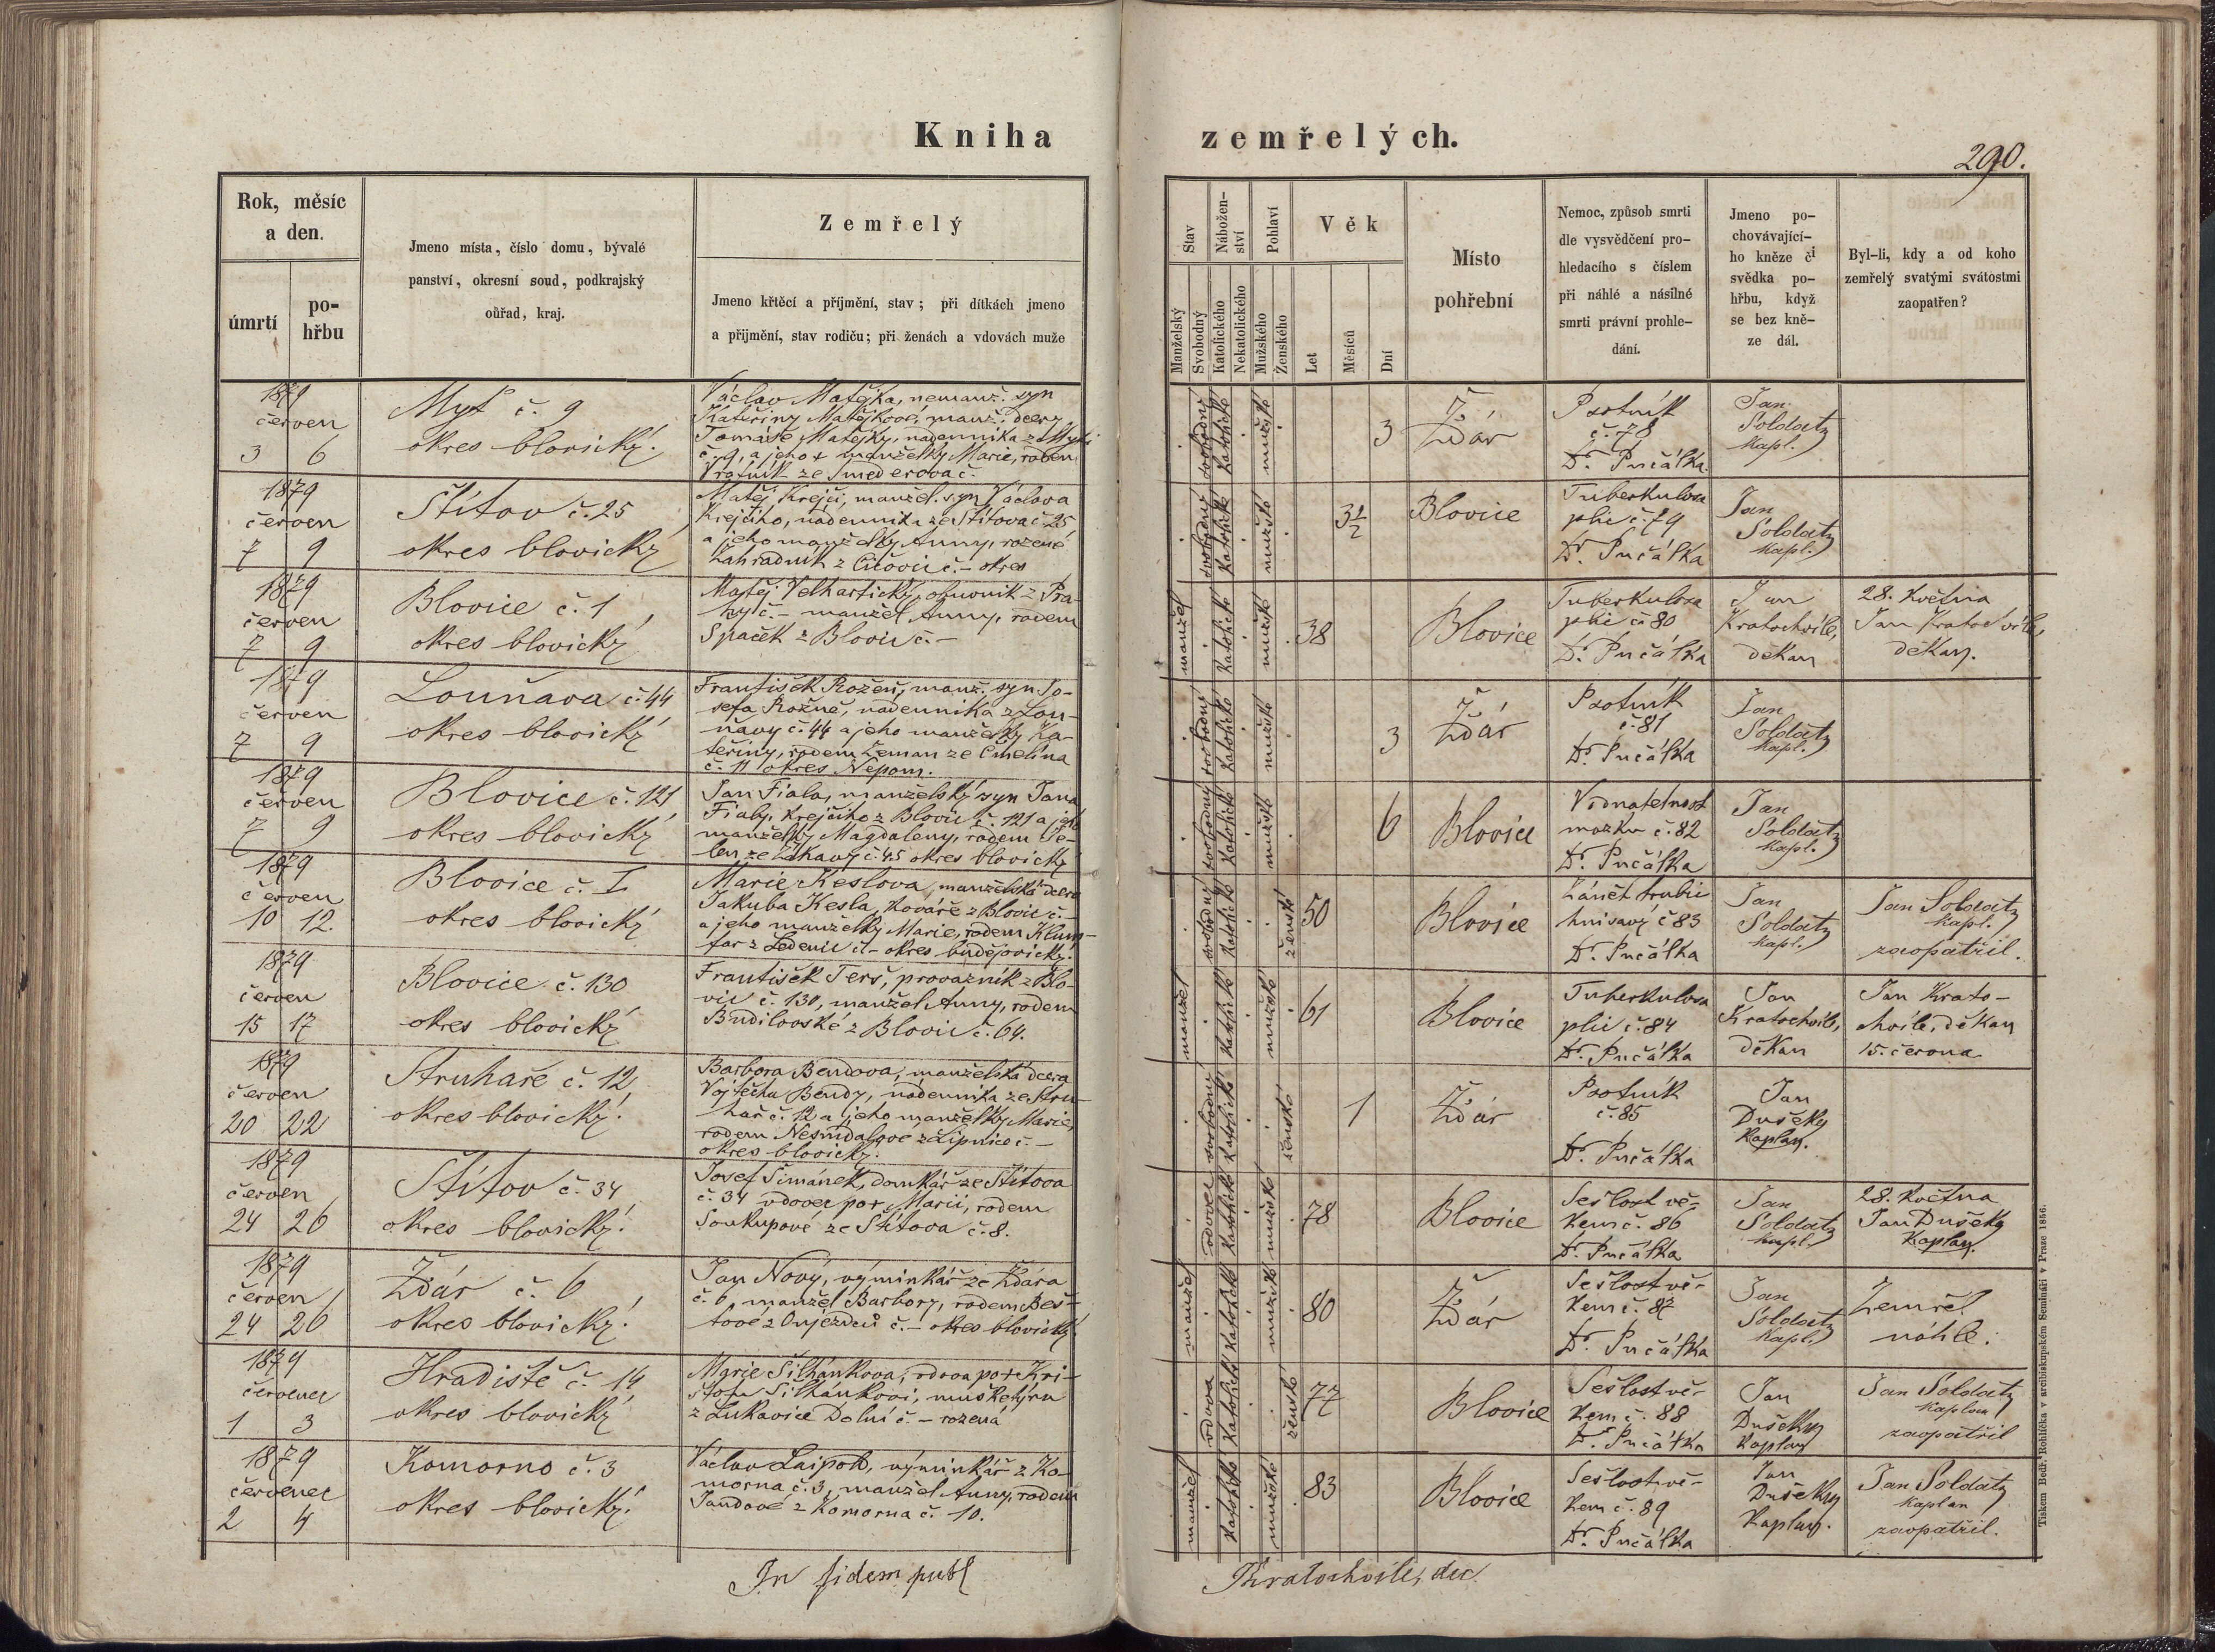 Kniha zemřelých.
290.
Rok, měsíc
a den.
úmrtí
po-
hřbu
Jmeno místa, číslo domu, bývalé
panství, okresní soud, podkrajský
ouřad, kraj.
Zemřelý
Jmeno křtěcí a příjmění, stav; při dítkách jmeno
a přijmění, stav rodičů; při ženách a vdovách muže
Stav
Manželský
Svobodný
Nábožen-
ství
Katolického
Nekatolického
Pohlaví
Mužského
Ženského
Věk
Let
Měsíců
Dní
Místo
pohřební
Nemoc, způsob smrti
dle vysvědčení pro-
hledacího s číslem
při náhlé a násilné
smrti právní prohle-
dání.
Jmeno po-
chovávající-
ho kněze či
svědka po-
hřbu, když
se bez kně-
ze dál.
Byl-li, kdy a od koho
zemřelý svatými svátostmi
zaopatřen?
1879
červen
3 6
Myť č. 9
okres blovický.
Václav Matějka, nemanž. syn
Kateřiny Matějkové, manž. dcery
Tomáše Matějky, nádenníka z Mytí
č. 9, a jeho + manželky Marie, rodem
Vratník ze Smederova č.
svobodný
katolické
mužské
3
Ždár
Psotník
č. 78
Dr. Pučálka
Jan
Soldátz
kapl.
1879
červen
7 9
Štítov č. 25
okres blovický
Matěj Krejčí, manžel. syn Václava
Krejčího, nádenníka ze Štítova č 25
a jeho manželky Anny, rozené
Zahradník z č. – okres
svobodný
katolické
mužské
3½
Blovice
Tuberkulosa
plic č. 79
Dr. Pučálka
Jan
Soldátz
kapl.
1879
červen
7 9
Blovice č. 1
okres blovický
Matěj Velhartický, obuvník z Pra-
hy č. – manžel Anny, rodem
Spaček z Blovic č. –
manžel
katolické
mužské
38
Blovice
Tuberkulosa
plic č 80
Dr. Pučálka
Jan
Kratochvíle,
děkan
28. května
Jan Kratochvíle,
děkan.
1879
červen
7 9
Louňava č. 44
okres blovický
František Rožeň, manž. syn Jo-
sefa Rožně, nádenníka z Lou-
ňavy č. 44 a jeho manželky Ka-
teřiny, rodem Zeman ze Čmelína
č. 11 okres Nepom.
svobodný
katolické
mužské
3
Ždár
Psotník
č. 81
Dr. Pučálka
Jan
Soldátz
kapl.
1879
červen
7 9
Blovice č. 121
okres blovický
Jan Fiala, manželský syn Jana
Fialy, krejčího z Blovic č. 121 a jeho
manželky Magdaleny, rodem Je-
len ze Ždkavy č. 45 okres blovický
svobodný
katolické
mužské
6
Blovice
Vodnatelnost
mozku č. 82
Dr. Pučálka
Jan
Soldátz
kapl.
1879
červen
10 12.
Blovice č. I
okres blovický
Marie Keslova, manželská dcera
Jakuba Kesla, kováře z Blovic č. –
a jeho manželky Marie, rodem Klum-
far z Ledenic č. – okres budějovický.
svobodný
katolické
ženské
50
Blovice
Zánět trubic
hnisavý č 83
Dr. Pučálka
Jan
Soldátz
kapl.
Jan Soldátz
kapl.
zaopatřil.
1879
červen
15 17
Blovice č. 130
okres blovický
František Terš, provazník z Blo-
vic č. 130, manžel Anny, rodem
Budilovské z Blovic č. 64.
manžel
katolické
mužské
61
Blovice
Tuberkulosa
plic č. 84
Dr. Pučálka
Jan
Kratochvíle,
děkan
Jan Krato-
chvíle, děkan
15. června
1879
červen
20 22
Struhaře č. 12
okres blovický.
Barbora Bendova, manželská dcera
Vojtěcha Bendy, nádenníka ze Stru-
hař č. 12 a jeho manželky Marie,
rodem Nesnídalové z Lipnice č. –
okres blovický.
svobodný
katolické
ženské
1
Ždár
Psotník
č. 85
Dr. Pučálka
Jan
Dušek
kaplan.
1879
červen
24 26
Štítov č. 34
okres blovický.
Josef Šimánek, domkář ze Štítova
č. 34 vdovec po + Marii, rodem
Soukupové ze Štítova č. 8.
vdovec
katolické
mužské
78
Blovice
Sešlost vě-
kem č. 86
Dr. Pučálka
Jan
Soldátz
kapl.
28. května
Jan Dušek
kaplan.
1879
červen
24 26
Ždár č. 6
okres blovický.
Jan Nový, výminkář ze Ždára
č. 6, manžel Barbory, rodem Beš-
tové z Oujezdců č. – okres blovický
manžel
katolické
mužské
80
Ždár
Sešlost vě-
kem č. 87
Dr. Pučálka
Jan
Soldátz
kapl.
Zemřel
náhle.
1879
červenec
1 3
Hradiště č. 14
okres blovický
Marie Šilhánkova, vdova po + Kri-
štofu Šilhánkovi, mušketýru
z Lukavice Dolní č. – rozená
vdova
katolické
ženské
77
Blovice
Sešlost vě-
kem č. 88
Dr. Pučálka
Jan
Dušek
kaplan
Jan Soldátz
kaplan
zaopatřil
1879
červenec
2 4
Komorno č. 3
okres blovický.
Václav Laipold, výminkář z Ko-
morna č. 3, manžel Anny, rodem
Jandové z Komorna č. 10.
manžel
katolické
mužské
83
Blovice
Sešlost vě-
kem č. 89
Dr. Pučálka
Jan
Dušek
kaplan.
Jan Soldátz
kaplan
zaopatřil.
In fidem publ
Kratochvíle, dec.
Tiskem Bedř. Rohlíčka v arcibiskupském Semináři v Praze 1856.